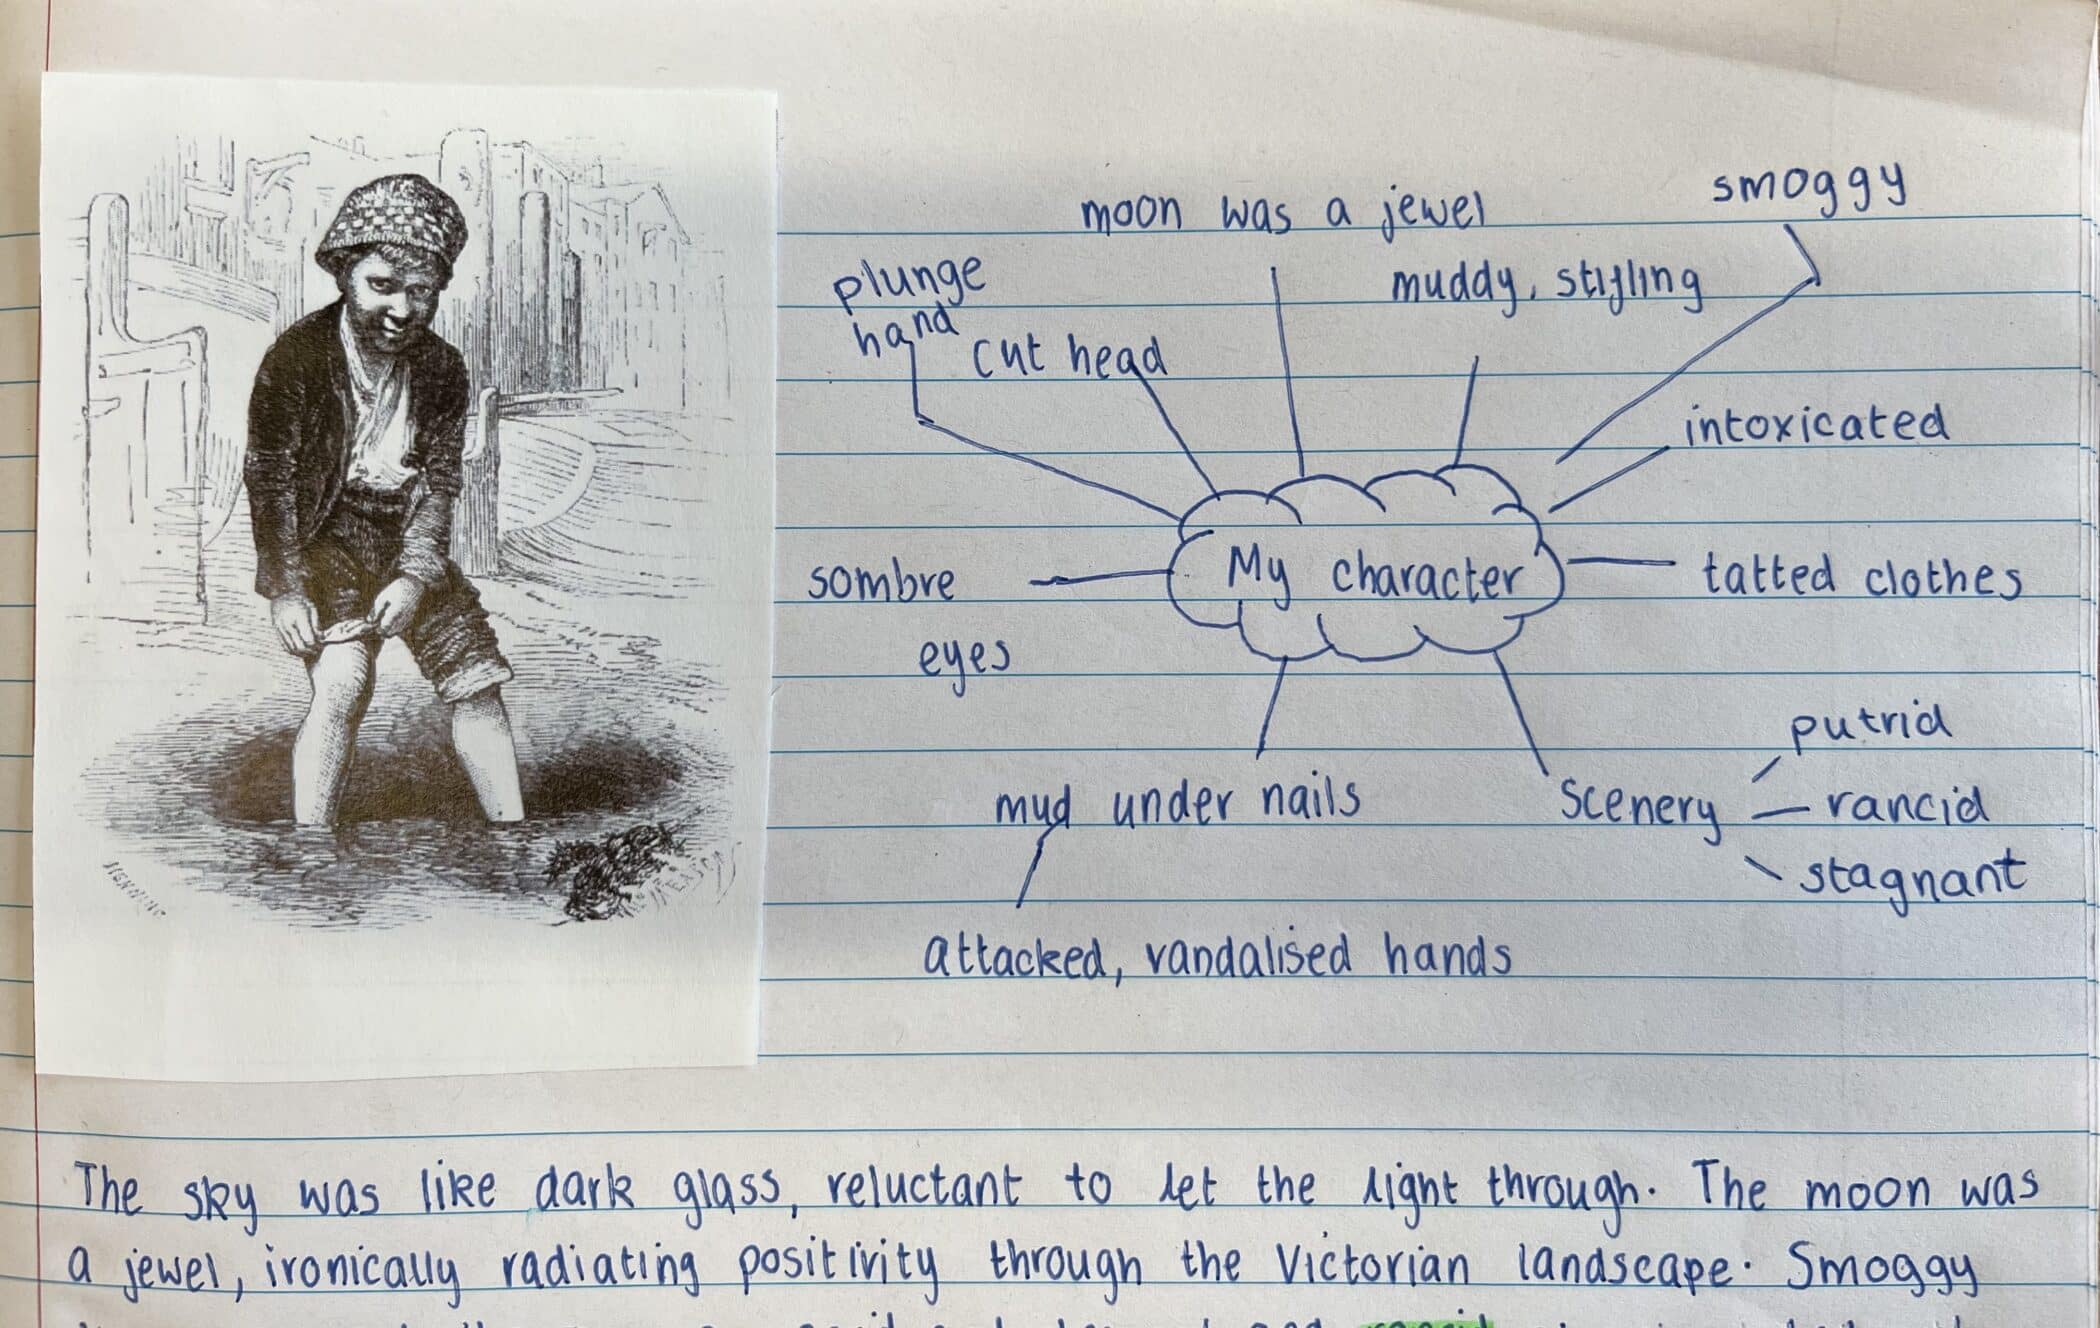 moon was a jewel
smoggy
plunge
hand
cut head
muddy, stifling
intoxicated
sombre
eyes
My character
tatted clothes
mud under nails
scenery
putrid
rancid
stagnant
attacked, vandalised hands
HENNING
The sky was like dark glass, reluctant to let the light through. The moon was
a jewel, ironically radiating positivity through the Victorian landscape. Smoggy